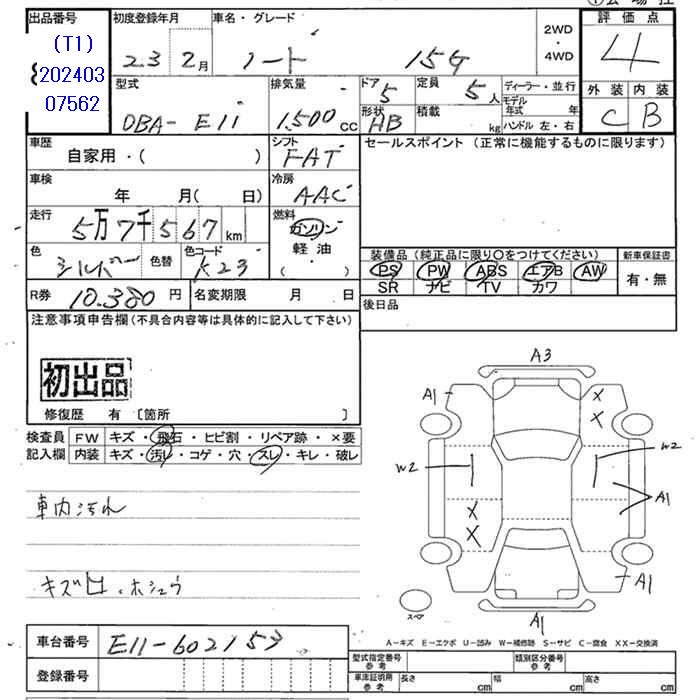 出品番号 (T1) 202403 07562
初度登録年月 23 2月
車名・グレード ノート 15G
2WD ・ 4WD
評価点 4
外装 C 内装 B
型式 DBA-E11
排気量 1,500 cc
ドア 5
定員 5人
形状 HB
積載 kg
ディーラー・並行
モデル年式 年
ハンドル 左・右
車歴 自家用・( )
シフト FAT
セールスポイント (正常に機能するものに限ります)
車検 年 月( 日)
冷房 AAC
走行 5万7千567 km
燃料 ガソリン 軽油 ( ・ )
色 シルバー 色替 色コード K23
装備品 (純正品に限り○をつけてください)
新車保証書
PS PW ABS エアB AW
SR ナビ TV カワ
有・無
R券 10,380 円
名変期限 月 日
後日品
注意事項申告欄 (不具合内容等は具体的に記入して下さい)
初出品
修復歴 有 〔箇所 〕
検査員 記入欄
FW キズ・飛石・ヒビ割・リペア跡・×要
内装 キズ・汚レ・コゲ・穴・スレ・キレ・破レ
車内汚れ
キズ凹・ホシュウ
A3
A1
X
X
W2
W2
X
X
A1
A1
A1
スペア
A-キズ E-エクボ U-凹み W-補修跡 S-サビ C-腐食 XX-交換済
車台番号 E11-602153
登録番号
型式指定番号 参考
類別区分番号 参考
車庫証明用 参考 長さ cm 幅 cm 高さ cm